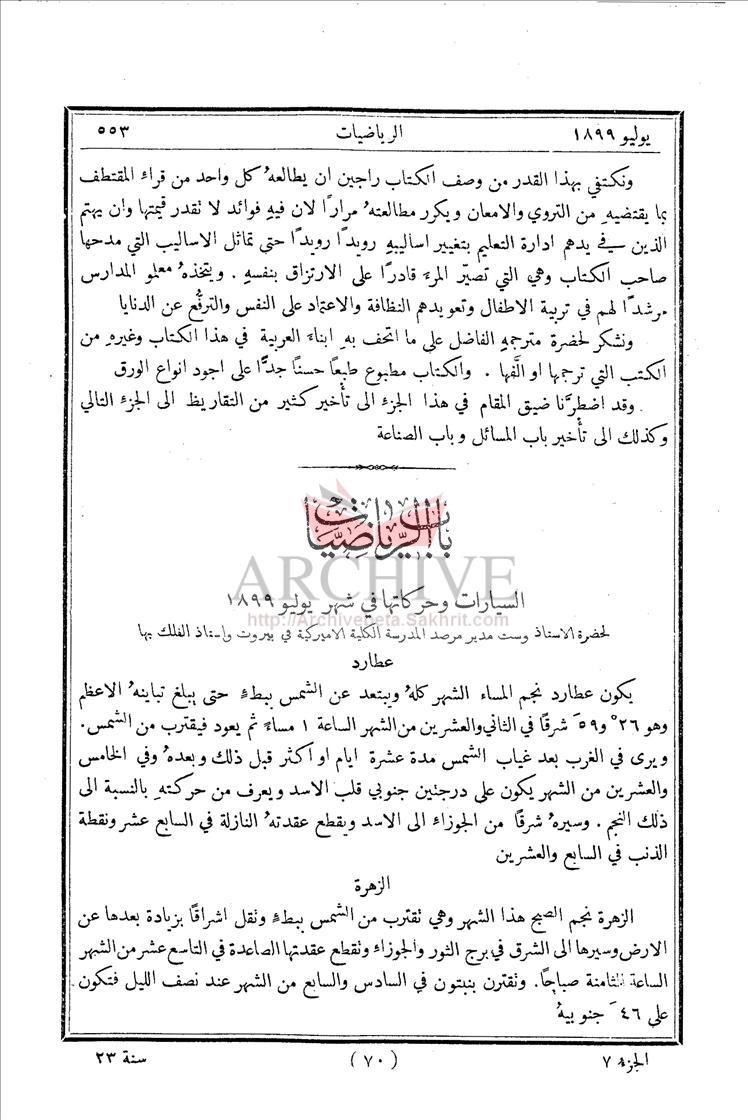 يوليو ١٨٩٩ الرياضيات ٥٥٣
ونكتفي بهذا القدر من وصف الكتاب راجين ان يطالعهُ كل واحد من قراء المقتطف
بما يقتضيهِ من التروي والامعان ويكرر مطالعتهُ مرارًا لان فيهِ فوائد لا تقدر قيمتها وان يهتم
الذين في يدهم ادارة التعليم بتغيير اساليبهِ رويدًا رويدًا حتى تماثل الاساليب التي مدحها
صاحب الكتاب وهي التي تصيّر المرء قادرًا على الارتزاق بنفسهِ . ويتخذهُ معلمو المدارس
مرشدًا لهم في تربية الاطفال وتعويدهم النظافة والاعتماد على النفس والترفُّع عن الدنايا
ونشكر لحضرة مترجمهِ الفاضل على ما اتحف بهِ ابناء العربية في هذا الكتاب وغيرهِ من
الكتب التي ترجمها او الَّفها . والكتاب مطبوع طبعًا حسنًا جدًّا على اجود انواع الورق
وقد اضطرَّنا ضيق المقام في هذا الجزء الى تأخير كثير من التقاريظ الى الجزء التالي
وكذلك الى تأخير باب المسائل وباب الصناعة
باب الرياضيات
ARCHIVE
السيارات وحركاتها في شهر يوليو ١٨٩٩
http://Archivebeta.Sakhrit.com
لحضرة الاستاذ وست مدير مرصد المدرسة الكلية الاميركية في بيروت واستاذ الفلك بها
عطارد
يكون عطارد نجم المساء الشهر كلهُ ويبتعد عن الشمس ببطءٍ حتى يبلغ تباينهُ الاعظم
وهو ٢٦° و٥٩َ شرقًا في الثاني والعشرين من الشهر الساعة ١ مساءً ثم يعود فيقترب من الشمس.
ويرى في الغرب بعد غياب الشمس مدة عشرة ايام او اكثر قبل ذلك وبعدهُ وفي الخامس
والعشرين من الشهر يكون على درجتين جنوبي قلب الاسد ويعرف من حركتهِ بالنسبة الى
ذلك النجم . وسيرهُ شرقًا من الجوزاء الى الاسد ويقطع عقدتهُ النازلة في السابع عشر ونقطة
الذنب في السابع والعشرين
الزهرة
الزهرة نجم الصبح هذا الشهر وهي تقترب من الشمس ببطءٍ وتقل اشراقًا بزيادة بعدها عن
الارض وسيرها الى الشرق في برج الثور والجوزاء وتقطع عقدتها الصاعدة في التاسع عشر من الشهر
الساعة الثامنة صباحًا. وتقترن بنبتون في السادس والسابع من الشهر عند نصف الليل فتكون
على ٤٦َ جنوبيهُ
الجزء ٧ (٧٠) سنة ٢٣